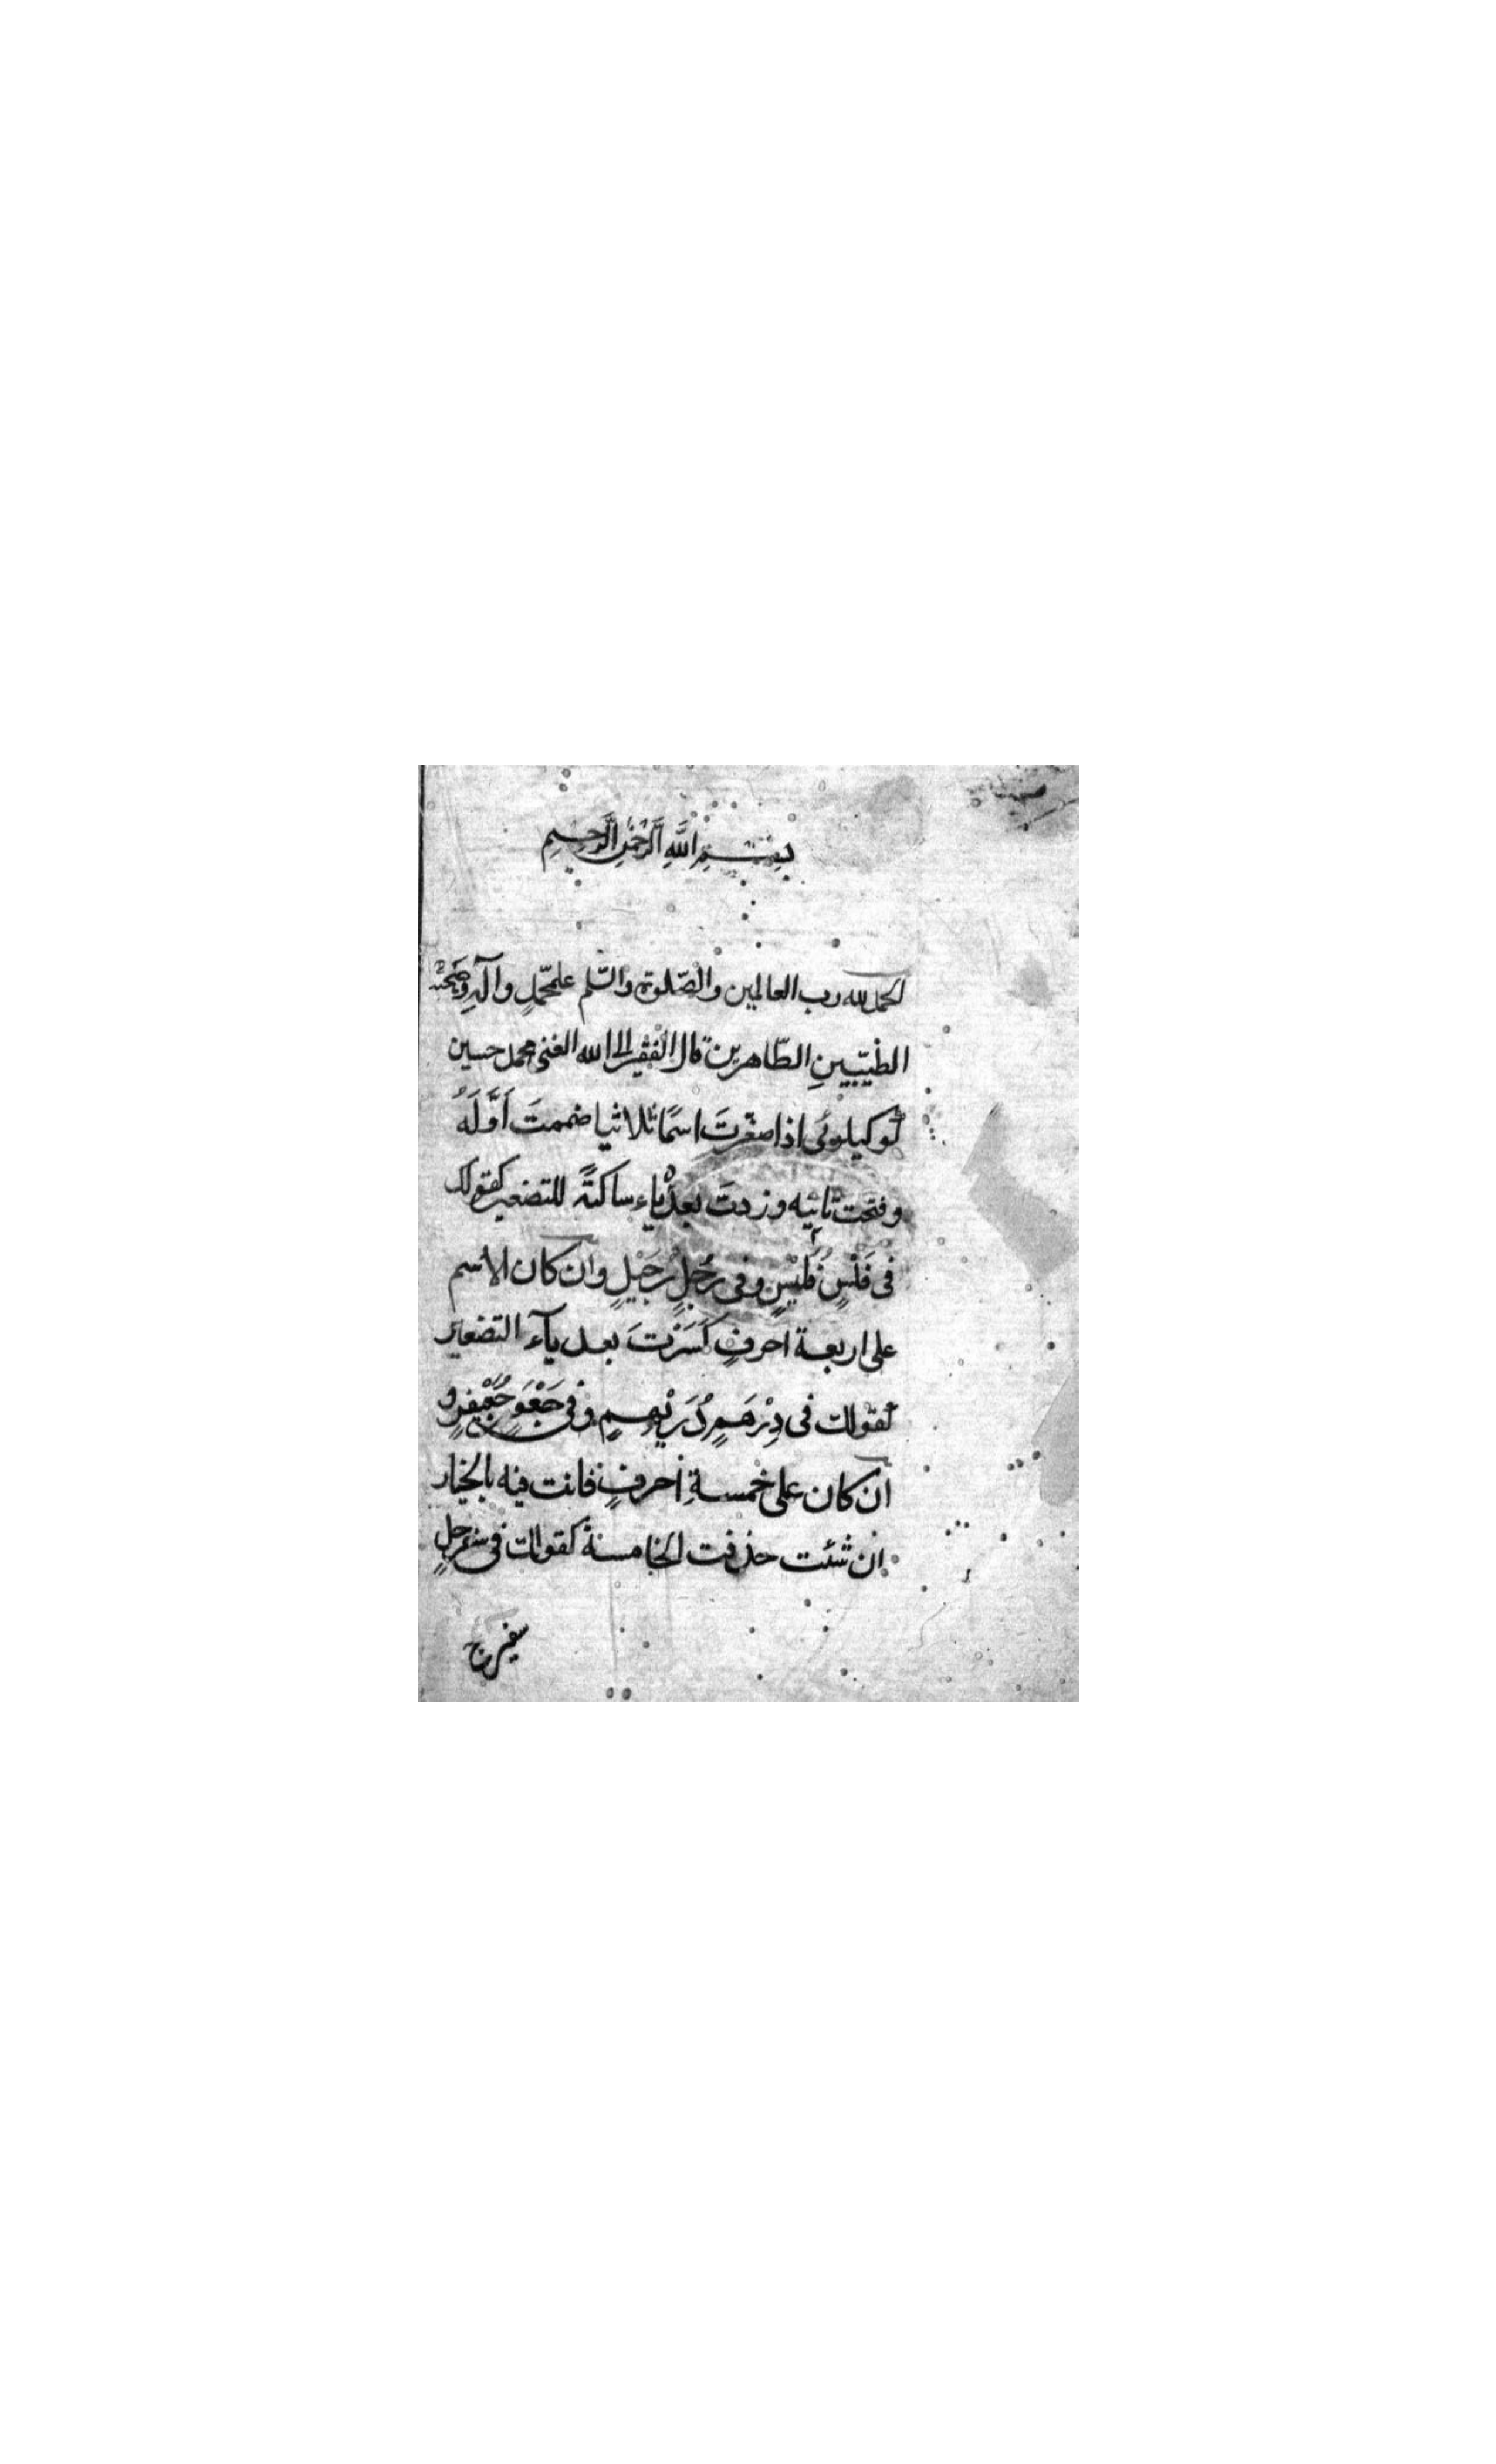 بِسْمِ اللَّهِ الرَّحْمٰنِ الرَّحِيمِ
الحمد لله رب العالمين والصّلوة والسّلم على محمّدٍ وآلهٖ وصحبه
الطيّبينِ الطّاهرين قال الفقير الى الله الغنى محمد حسين
اذا صغّرتَ اسمًا ثلاثيا ضممتَ اَوَّلَهُ
وفتحت ثانيه وزدتَ بعدهٗ ياء ساكنةً للتصغير كقولك
فى فَلْسٍ فُلَيْسٍ وفى رَجُلٍ رُجَيْلٍ وان كان الاسم
على اربعة احرفٍ كَسَرْتَ بعد يآء التصغير
كقولك فى دِرْهَمٍ دُرَيْهِمٍ وفى جَعْفَرٍ جُعَيْفِرٍ و
ان كان على خمسةِ احرفٍ فانت فيه بالخيار
ان شئت حذفت الخامسة كقولك فى سفرجلٍ
سفيرج